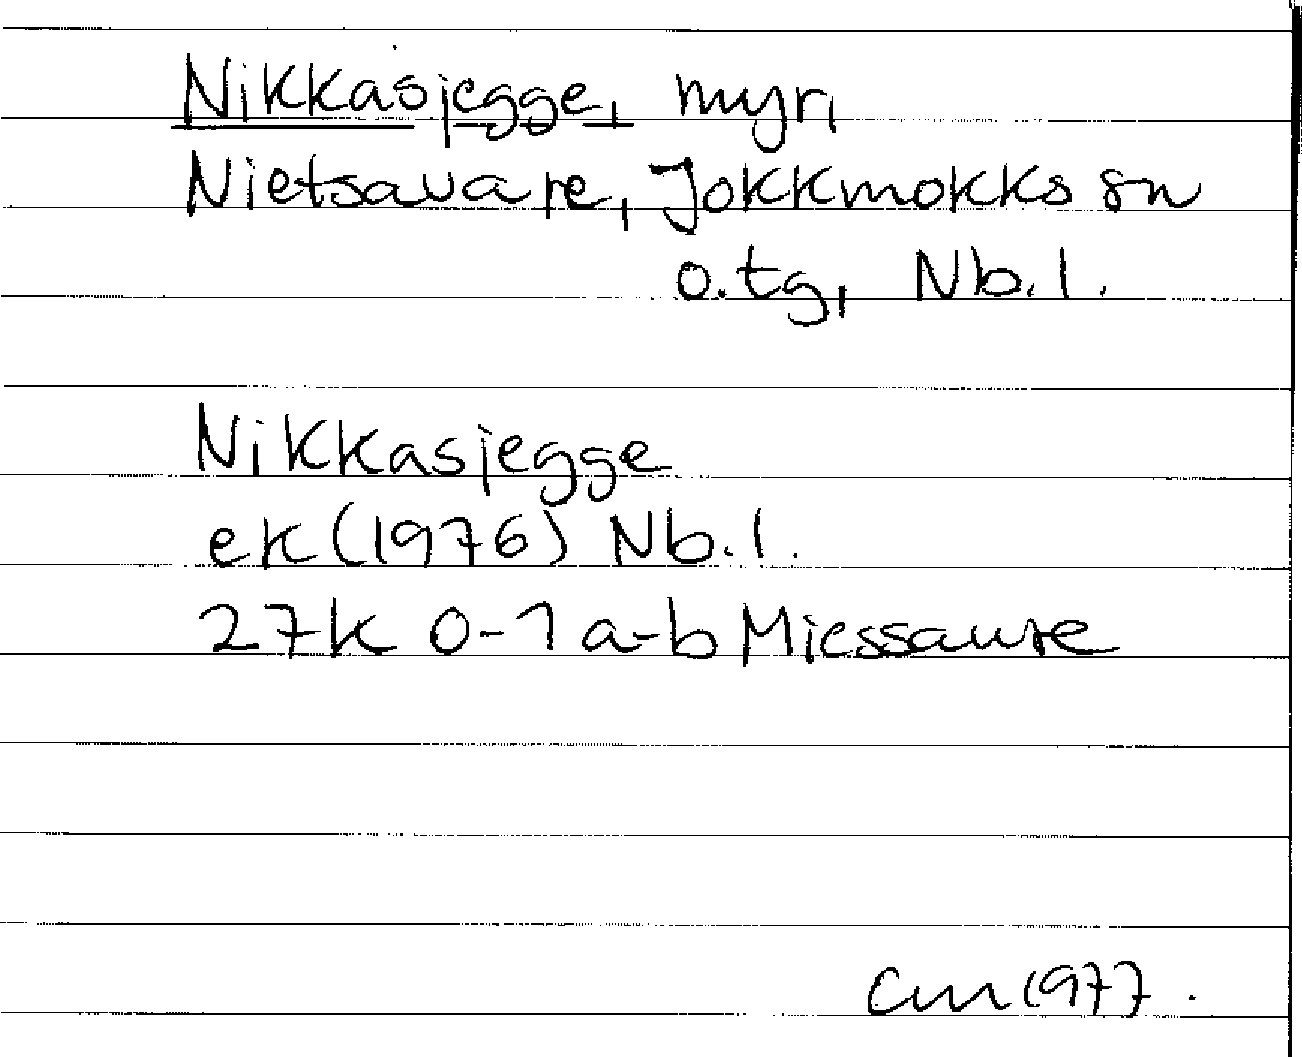 Nikkasjegge, myr,
Nietsavare, Jokkmokks sn
o.tg, Nb.l.
Nikkasjegge
ek (1976) Nb.l.
27k 0-1 a-b Miessaure
1977.